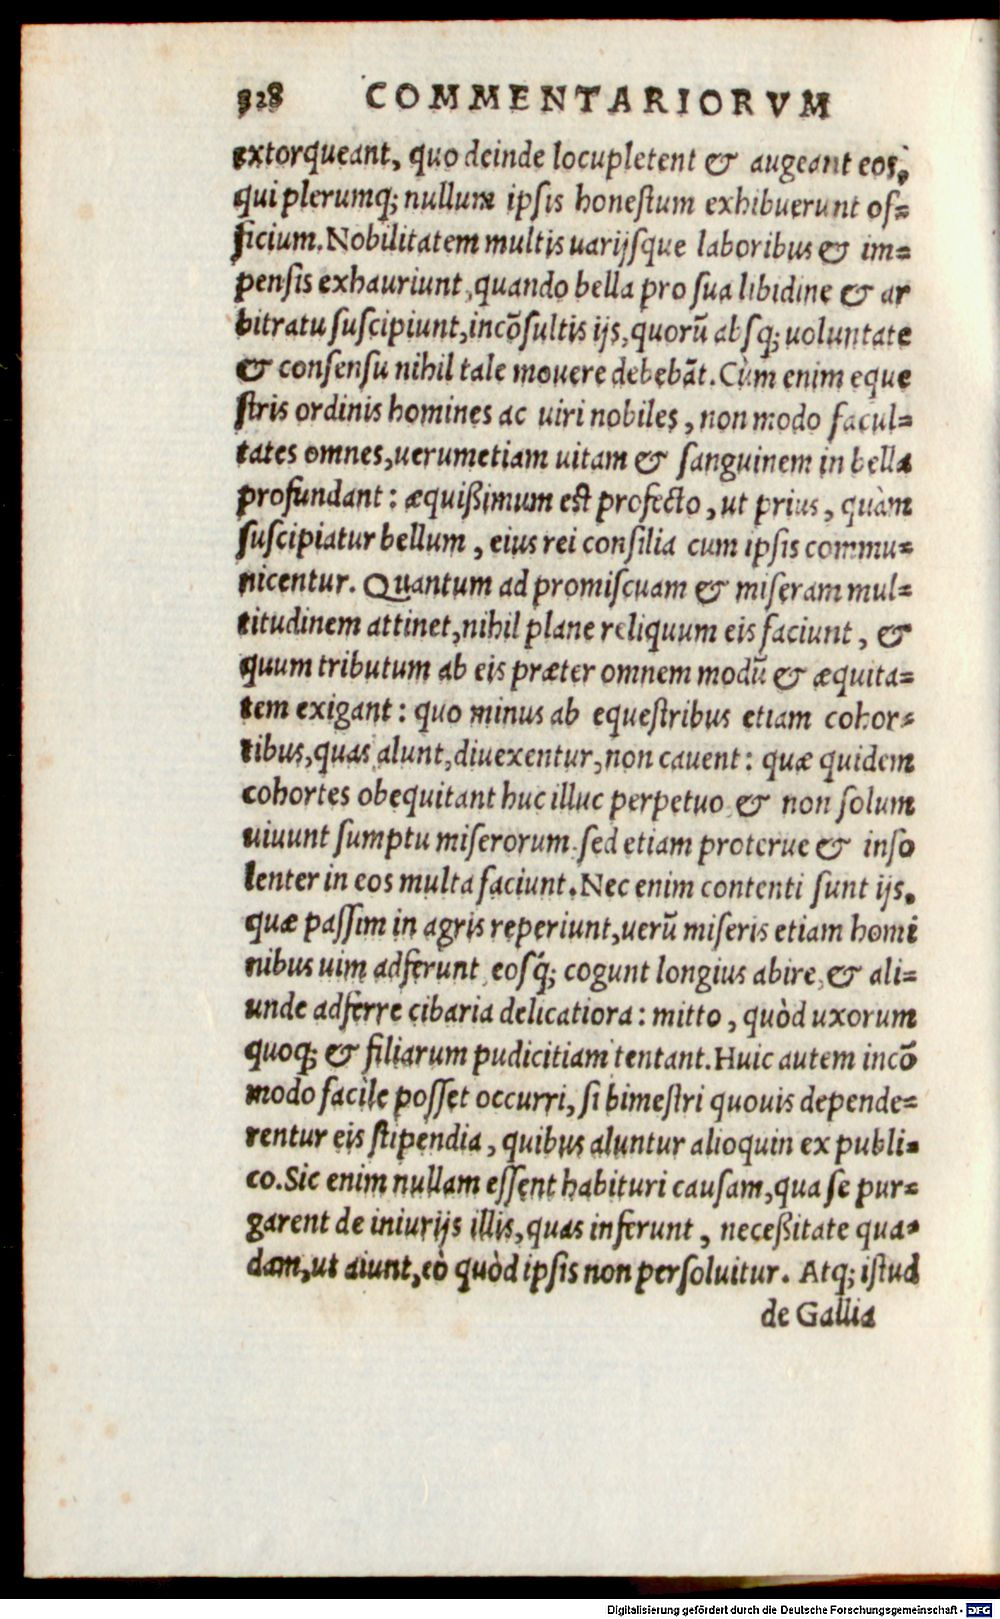 328 COMMENTARIORVM
extorqueant, quo deinde locupletent & augeant eos,
qui plerumq; nullum ipsis honestum exhibuerunt of=
ficium. Nobilitatem multis uarijsque laboribus & im=
pensis exhauriunt, quando bella pro sua libidine & ar
bitratu suscipiunt, incõsultis ijs, quorũ absq; uoluntate
& consensu nihil tale mouere debebãt. Cùm enim eque
stris ordinis homines ac uiri nobiles, non modo facul=
tates omnes, uerumetiam uitam & sanguinem in bella
profundant: æquißimum est profecto, ut prius, quàm
suscipiatur bellum, eius rei consilia cum ipsis commu=
nicentur. Quantum ad promiscuam & miseram mul=
titudinem attinet, nihil plane reliquum eis faciunt, &
quum tributum ab eis præter omnem modũ & æquita=
tem exigant: quo minus ab equestribus etiam cohor=
tibus, quas alunt, diuexentur, non cauent: quæ quidem
cohortes obequitant huc illuc perpetuo & non solum
uiuunt sumptu miserorum sed etiam proterue & inso
lenter in eos multa faciunt. Nec enim contenti sunt ijs,
quæ passim in agris reperiunt, uerũ miseris etiam homi
nibus uim adferunt eosq́; cogunt longius abire, & ali=
unde adferre cibaria delicatiora: mitto, quòd uxorum
quoq; & filiarum pudicitiam tentant. Huic autem incõ
modo facile posset occurri, si bimestri quouis depende=
rentur eis stipendia, quibus aluntur alioquin ex publi=
co. Sic enim nullam essent habituri causam, qua se pur=
garent de iniurijs illis, quas inferunt, neceßitate qua=
dam, ut aiunt, eò quòd ipsis non persoluitur. Atq; istud
de Gallia
Digitalisierung gefördert durch die Deutsche Forschungsgemeinschaft - DFG